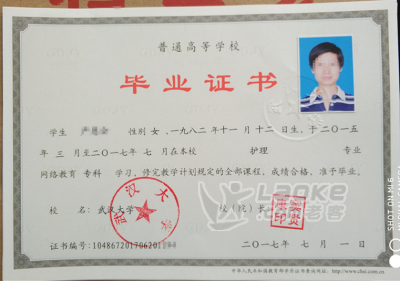 普通高等学校
毕业证书
学生 性别 女，一九八二年十一月十二日生，于二〇一五
年 三 月至二〇一七年 七 月在本校 护理 专业
网络教育 专科 学习，修完教学计划规定的全部课程，成绩合格，准予毕业。
校 名： 武汉大学 校（院）长：
武汉大学
证书编号：104867201706201
二〇一七年 七 月 一 日
中华人民共和国教育部学历证书查询网址：http://www.chsi.com.cn
Laoke
老客
SHOT ON MI 6